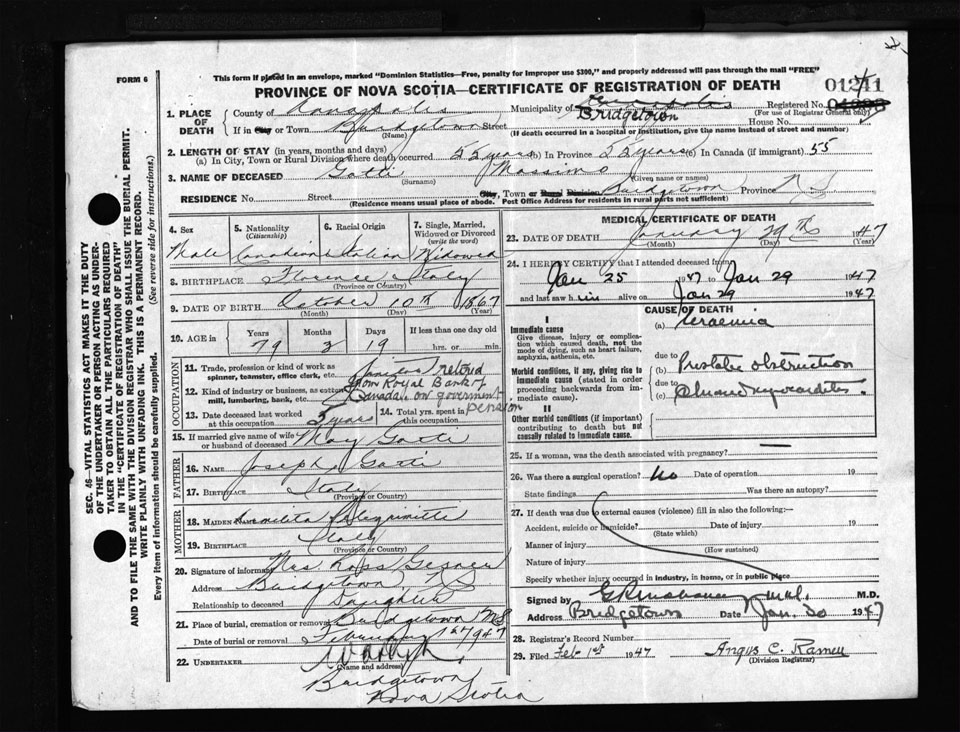 FORM 6
This form if placed in an envelope, marked "Dominion Statistics—Free, penalty for improper use $300," and properly addressed will pass through the mail "FREE"
PROVINCE OF NOVA SCOTIA—CERTIFICATE OF REGISTRATION OF DEATH
1. PLACE OF DEATH
County of Annapolis Municipality of Annapolis Bridgetown Registered No. 01241
(For use of Registrar General only)
If in City or Town Bridgetown Street House No.
(Name) (If death occurred in a hospital or institution, give the name instead of street and number)
2. LENGTH OF STAY (in years, months and days)
(a) In City, Town or Rural Division where death occurred 55 years (b) In Province 55 years (c) In Canada (if immigrant) 55
3. NAME OF DECEASED Gatti Massimo
(Surname) (Given name or names)
RESIDENCE No. Street City, Town or Rural Division Bridgetown Province N S
(Residence means usual place of abode. Post Office Address for residents in rural parts not sufficient)
4. Sex Male
5. Nationality (Citizenship) Canadian
6. Racial Origin Italian
7. Single, Married, Widowed or Divorced (write the word) Widowed
8. BIRTHPLACE Florence Italy
(Province or Country)
9. DATE OF BIRTH October 10th 1867
(Month) (Day) (Year)
10. AGE in Years Months Days If less than one day old
79 3 19 hrs. or min.
OCCUPATION
11. Trade, profession or kind of work as spinner, teamster, office clerk, etc. Janitor retired
12. Kind of industry or business, as cotton mill, lumbering, bank, etc. from Royal Bank of Canada. on goverment pension
13. Date deceased last worked at this occupation 5 years
14. Total yrs. spent in this occupation
15. If married give name of wife or husband of deceased May Gatti
FATHER
16. NAME Joseph Gatti
17. BIRTHPLACE Italy
(Province or Country)
MOTHER
18. MAIDEN NAME
19. BIRTHPLACE Italy
(Province or Country)
20. Signature of informant Mrs Ross Gesner
Address Bridgetown N S
Relationship to deceased Daughter
21. Place of burial, cremation or removal Bridgetown N S
Date of burial or removal February 1st 1947
22. UNDERTAKER
(Name and address)
Bridgetown
Nova Scotia
MEDICAL CERTIFICATE OF DEATH
23. DATE OF DEATH January 29th 1947
(Month) (Day) (Year)
24. I HEREBY CERTIFY that I attended deceased from
Jan 25 1947 to Jan 29 1947
and last saw him alive on Jan 29 1947
CAUSE OF DEATH
I
Immediate cause
Give disease, injury or complication which caused death, not the mode of dying, such as heart failure, asphyxia, asthenia, etc.
(a) Uraemia
Morbid conditions, if any, giving rise to immediate cause (stated in order proceeding backwards from immediate cause)
due to Prostatic obstruction
due to
(c) Chronic myocarditis
II
Other morbid conditions (if important) contributing to death but not causally related to immediate cause.
25. If a woman, was the death associated with pregnancy? —
26. Was there a surgical operation? No Date of operation 19
State findings Was there an autopsy?
27. If death was due to external causes (violence) fill in also the following:—
Accident, suicide or homicide? Date of injury 19
(State which)
Manner of injury
(How sustained)
Nature of injury
Specify whether injury occurred in industry, in home, or in public place
Signed by M.D.
Address Bridgetown Date Jan. 30 1947
28. Registrar's Record Number
29. Filed Feb 1st 1947 Angus C.
(Division Registrar)
SEC. 46—VITAL STATISTICS ACT MAKES IT THE DUTY
OF THE UNDERTAKER OR PERSON ACTING AS UNDER-
TAKER TO OBTAIN ALL THE PARTICULARS REQUIRED
IN THE "CERTIFICATE OF REGISTRATION OF DEATH"
AND TO FILE THE SAME WITH THE DIVISION REGISTRAR WHO SHALL ISSUE THE BURIAL PERMIT.
WRITE PLAINLY WITH UNFADING INK. THIS IS A PERMANENT RECORD.
Every item of information should be carefully supplied. (See reverse side for instructions.)